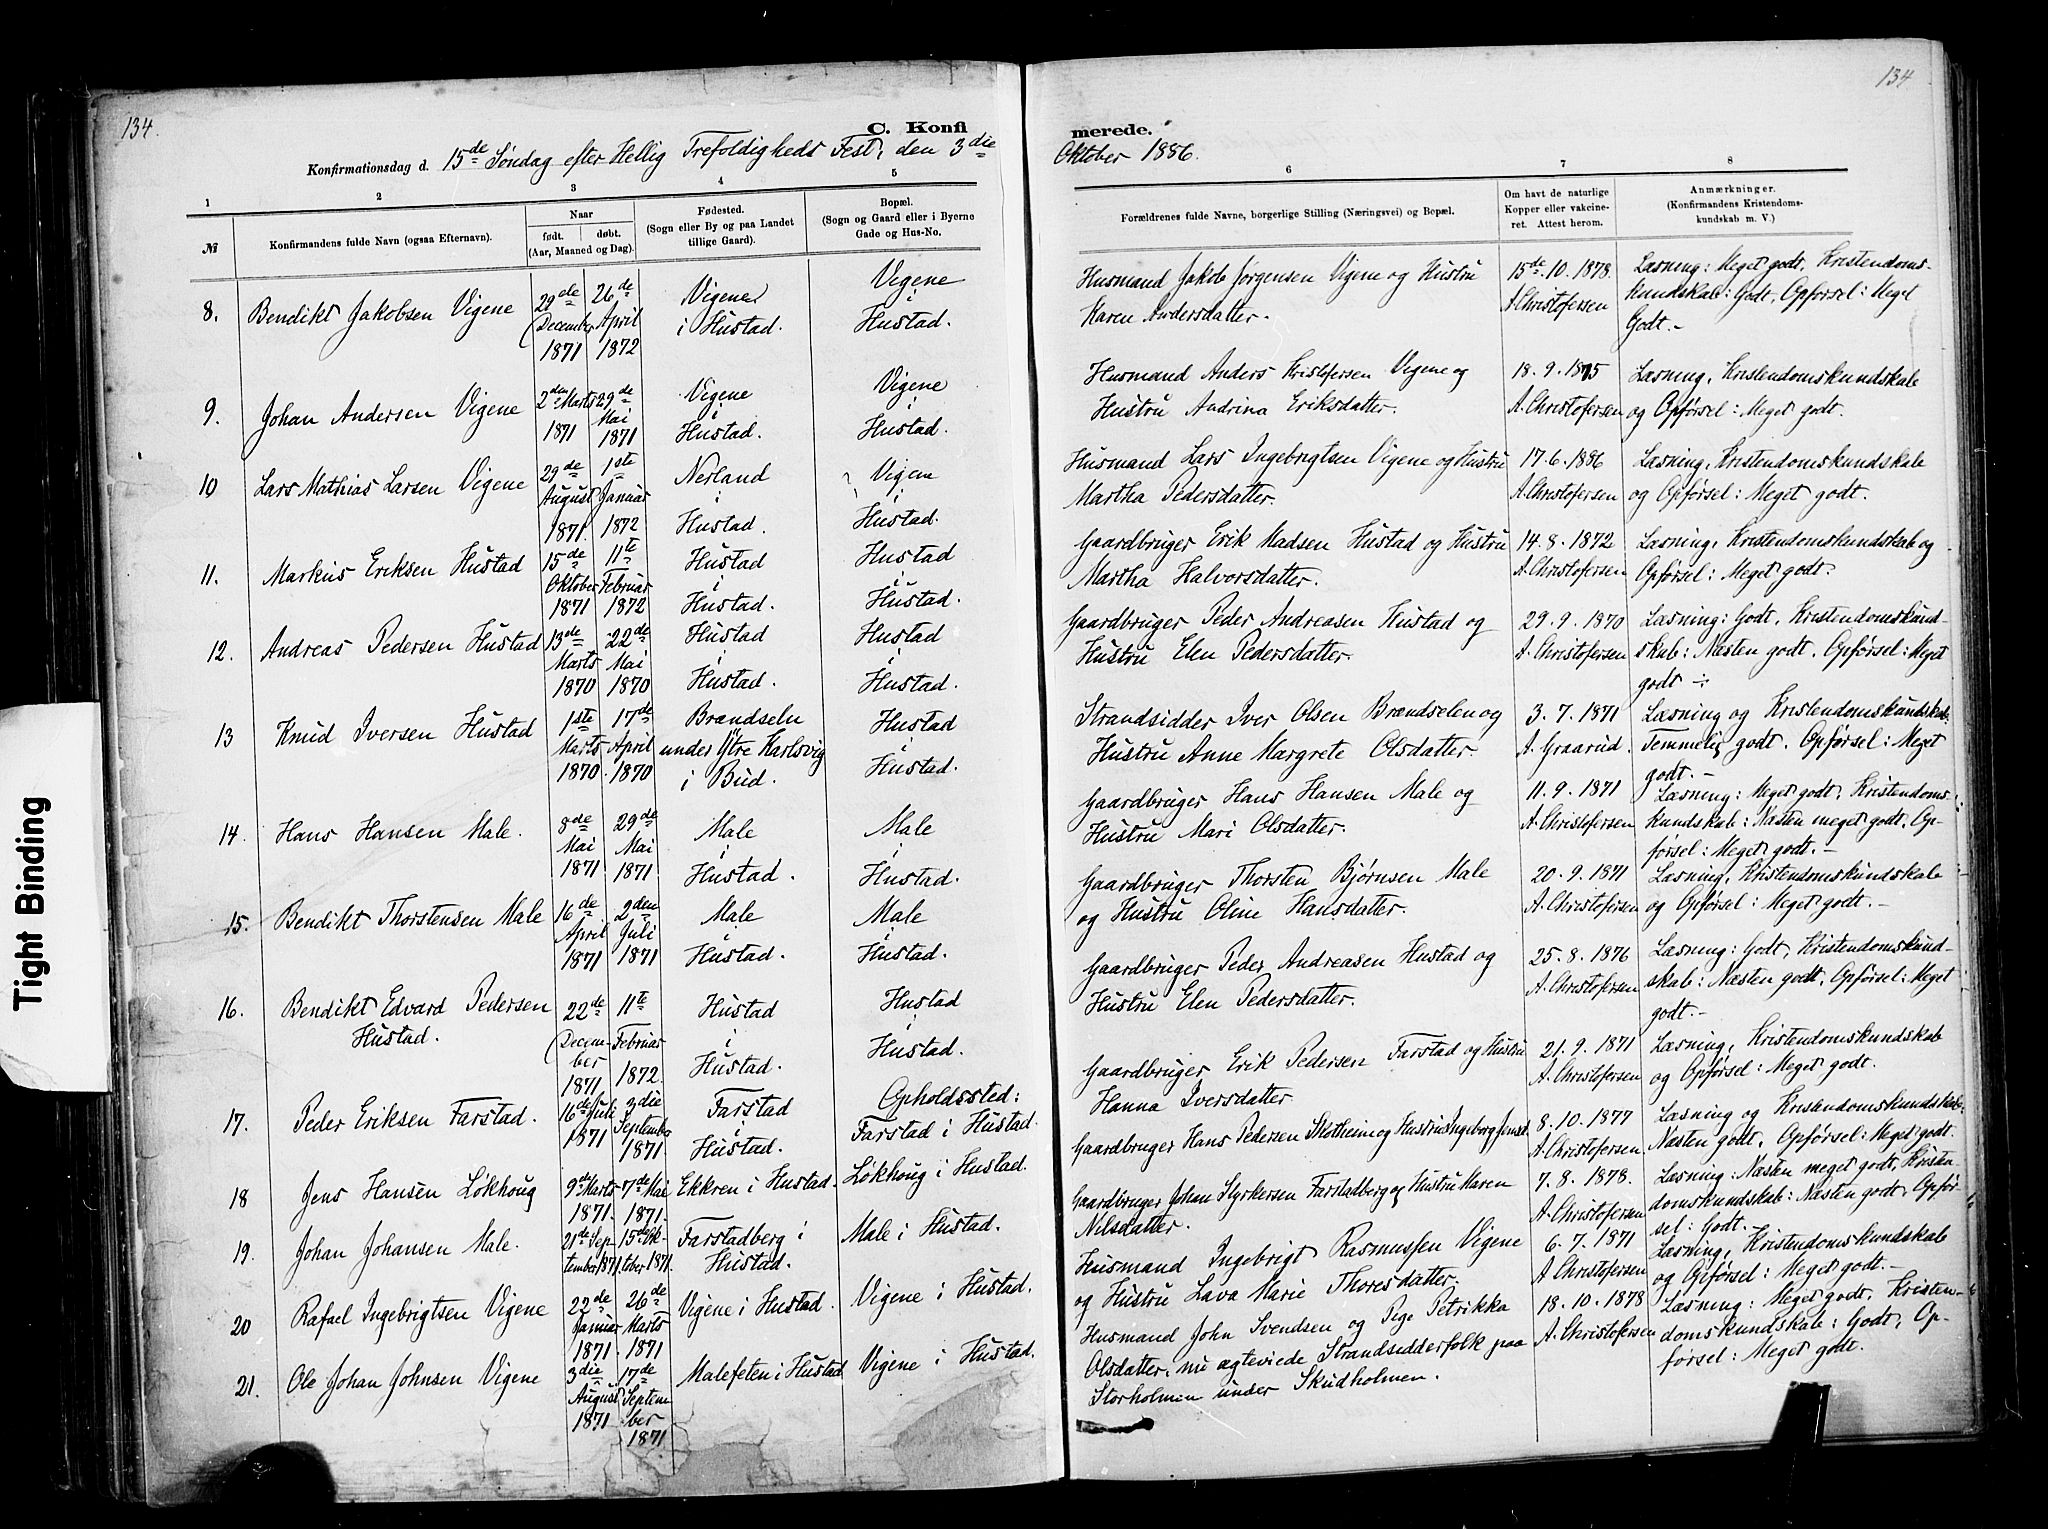 134.
C. Konfi
Konfirmationsdag d. 15de Søndag efter Hellig Trefoldigheds Fest, den 3die
1 2 3 4 5
№ Konfirmandens fulde Navn (ogsaa Efternavn). Naar født. døbt. (Aar, Maaned og Dag). Fødested. (Sogn eller By og paa Landet tillige Gaard). Bopæl. (Sogn og Gaard eller i Byerne Gade og Hus-No.
8. Bendikt Jakobsen Vigene 29de December 1871 26de April 1872 Vigene i Hustad. Vegene i Hustad.
9. Johan Andersen Vigene 2den Marts 1871 29de Mai 1871 Vigene i Hustad. Vigene i Hustad.
10 Lars Mathias Larsen Vigene 29de August 1871. 1ste Januar 1872 Nerland i Hustad. Vigene i Hustad.
11. Markus Eriksen Hustad 15de Oktober 1871 11te Februar 1872 Hustad i Hustad. Hustad i Hustad.
12. Andreas Pedersen Hustad 13de Marts 1870 22de Mai 1870 Hustad i Hustad. Hustad i Hustad.
13 Knud Iversen Hustad 1ste Marts 1870. 17de April 1870 Brændseln under Ytre Harlsvig i Bud. Hustad i Hustad.
14. Hans Hansen Male. 8de Mai 1871 29de Mai 1871 Male i Hustad. Male i Hustad.
15. Bendikt Thorstensen Male 16de April 1871 2den Juli 1871 Male i Hustad. Male i Hustad.
16. Bendikt Edvard Pedersen Hustad. 22de December 1871 11te Februar 1872. Hustad i Hustad. Hustad i Hustad.
17. Peder Eriksen Farstad. 16de Juli 1871 3die September 1871 Farstad i Hustad. Opholdssted: Farstad i Hustad.
18 Jens Hansen Løkhoug 9de Marts 1871. 7de Mai 1871. Ekkren i Hustad. Løkhoug i Hustad.
19. Johan Johansen Male. 21de September 1871. 15de Oktober 1871. Farstadberg i Hustad. Male i Hustad.
20 Rafael Ingebrigtsen Vigene 22de Januar 1871. 26de Marts 1871 Vigene i Hustad. Vigene i Hustad.
21. Ole Johan Johnsen Vigene 3die August 1871. 17de September 1871 Malefeten i Hustad Vigene i Hustad.
134
merede.
Oktober 1886.
6 7 8
Forældrenes fulde Navne, borgerlige Stilling (Næringsvei) og Bopæl. Om havt de naturlige Kopper eller vakcineret. Attest herom. Anmærkninger. (Konfirmandens Kristendomskundskab m. V.)
Husmand Jakob Jørgensen Vigene og Hustru Karen Andersdatter. 15de 10. 1878. A. Christofersen Læsning: Meget godt, Kristendomskundskab: Godt, Opførsel: Meget Godt.-
Husmand Anders Kristofersen Vegene og Hustru Andrina Eriksdatter. 18. 9. 1875 A. Christofersen Læsning, Kristendomskundskab og Opførsel: Meget godt.
Husmand Lars Ingebrigtsen Vigene og Hustru Martha Pedersdatter. 17. 6. 1886 A. Christofersen Læsning, Kristendomskundskab og Opførsel: Meget godt.
Gaardbruger Erik Madsen Hustad og Hustru Martha Halvorsdatter. 14. 8. 1872 A. Christofersen Læsning, Kristendomskundskab og Opførsel: Meget godt.
Gaardbruger Peder Andreasen Hustad og Hustru Elen Pedersdatter. 29. 9. 1870 A. Christofersen Læsning: Godt, Kristendomskundskab: Næsten godt. Opførsel: Meget godt
Strandsidder Iver Olsen Brændselen og Hustru Anne Margrete Olsdatter. 3. 7. 1871 A. Graarud. Læsning og Kristendomskundskab: Temmelig godt. Opførsel: Meget godt.-
Gaardbruger Hans Hansen Male og Hustru Mari Olsdatter. 11. 9. 1871 A. Christofersen Læsning: Meget godt, Kristendomskundskab: Næsten meget godt, Opførsel: Meget godt.-
Gaardbruger Thorsten Bjørnsen Male og Hustru Oline Hansdatter. 20. 9. 1871 A. Christofersen Læsning, Kristendomskundskab og Opførsel: Meget godt.-
Gaardbruger Peder Andreasen Hustad og Hustru Elen Pedersdatter. 25. 8. 1876 A. Christofersen Læsning: Godt, Kristendomskundskab: Næsten godt, Opførsel: Meget godt.-
Gaardbruger Erik Pedersen Farstad og Hustru Hanna Iversdatter. 21. 9. 1871 A. Christofersen Læsning, Kristendomskundskab og Opførsel: Meget godt.
Gaardbruger Hans Pedersen Slotheim og Hustru Ingeborg Jensd. 8. 10. 1877 A. Christofersen Læsning og Kristendomskundskab: Næsten godt, Opførsel: Meget godt.
Gaardbruger Johan Styrkersen Farstadberg og Hustru Maren Nilsdatter. 7. 8. 1878. A. Christofersen Læsning: Næsten meget godt, Kristendomskundskab: Næsten godt, Opførsel: Godt.
Husmand Ingebrigt Rasmussen Vigene og Hustru Lava Marie Thoresdatter. 6. 7. 1871 A Christofersen Læsning, Kristendomskundskab og Opførsel: Meget godt.-
Husmand John Svendsen og Pige Petrikka Olsdatter, nu ægteviede Strandsidderfolk paa Storholmen under Skudholmen. 18. 10. 1878 A. Christofersen Læsning: Meget godt, Kristendomskundskab: Godt, Opførsel: Meget godt.
Tight Binding